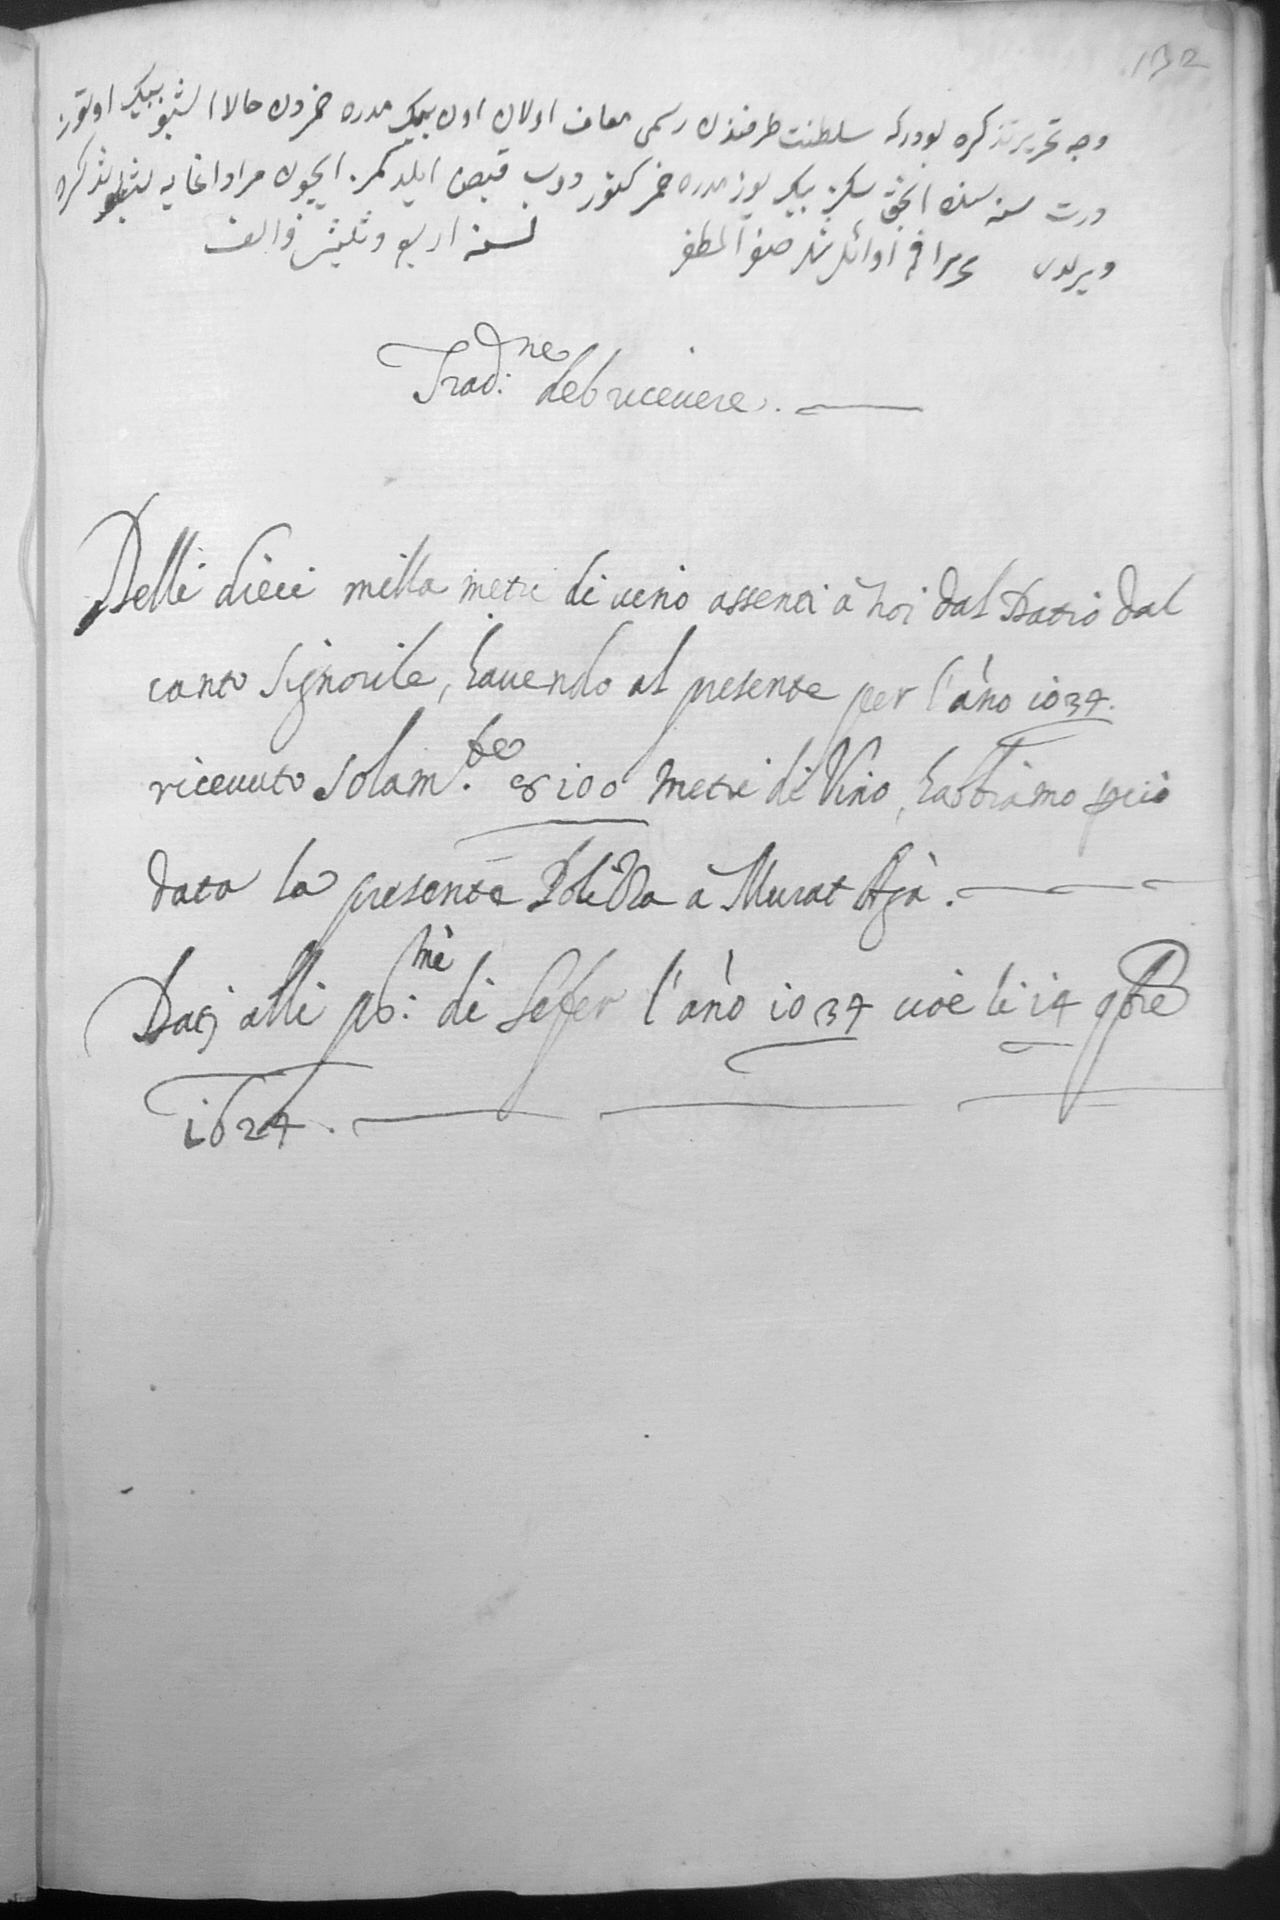 132
وجه تحرير تذكره بودركه سلطنت طرفندن رسمى معاف اولان اون بيك مدره خمردن حالا اشبو بيك اوتوز
درت سنه سنده انجق سكز بيك يوز مدره خمر كتوردوب قبض ايلدكمز ايچون مراد اغايه اشبو تذكره
ويرلدى تحريرا فى اوائل شهر صفر المظفر لسنه اربع وثلثين والف
Trad:ne del riceuere.
Delli dieci milla metri di uino assenti à noi dal Datio dal
canto Signorile, hauendo al presente per l'año 1034.
riceuuto solam.te 8100 metri di Vino, habbiamo perciò
data la presente Poliza à Murat Agà.
Datj alli p.mi di Sefer l'año 1034 cioè li 14 9bre
1624.